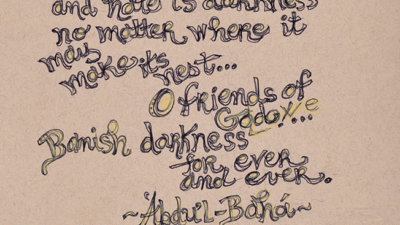 and hate is darkness
no matter where it
may
make its nest...
O friends of
God...
Banish darkness
for ever
and ever.
~Abdu'l-Bahá~